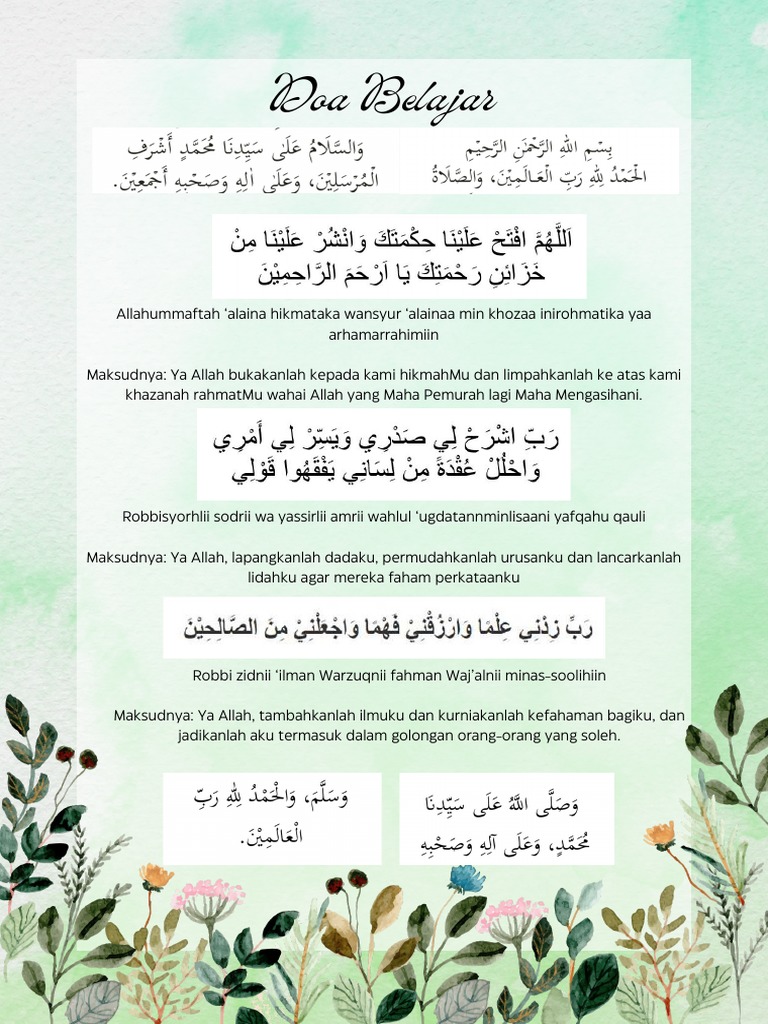 Doa Belajar
بِسْمِ اللهِ الرَّحْمٰنِ الرَّحِيْمِ
الْحَمْدُ لِلّٰهِ رَبِّ الْعَالَمِيْنَ، وَالصَّلَاةُ
وَالسَّلَامُ عَلَى سَيِّدِنَا مُحَمَّدٍ أَشْرَفِ
الْمُرْسَلِيْنَ، وَعَلَى اٰلِهِ وَصَحْبِهِ أَجْمَعِيْنَ.
اَللَّهُمَّ افْتَحْ عَلَيْنَا حِكْمَتَكَ وَانْشُرْ عَلَيْنَا مِنْ
خَزَائِنِ رَحْمَتِكَ يَا اَرْحَمَ الرَّاحِمِيْنَ
Allahummaftah ‘alaina hikmataka wansyur ‘alainaa min khozaa inirohmatika yaa
arhamarrahimiin
Maksudnya: Ya Allah bukakanlah kepada kami hikmahMu dan limpahkanlah ke atas kami
khazanah rahmatMu wahai Allah yang Maha Pemurah lagi Maha Mengasihani.
رَبِّ اشْرَحْ لِي صَدْرِي وَيَسِّرْ لِي أَمْرِي
وَاحْلُلْ عُقْدَةً مِنْ لِسَانِي يَفْقَهُوا قَوْلِي
Robbisyorhlii sodrii wa yassirlii amrii wahlul ‘ugdatannminlisaani yafqahu qauli
Maksudnya: Ya Allah, lapangkanlah dadaku, permudahkanlah urusanku dan lancarkanlah
lidahku agar mereka faham perkataanku
رَبِّ زِدْنِي عِلْمًا وَارْزُقْنِيْ فَهْمًا وَاجْعَلْنِيْ مِنَ الصَّالِحِيْنَ
Robbi zidnii ‘ilman Warzuqnii fahman Waj’alnii minas-soolihiin
Maksudnya: Ya Allah, tambahkanlah ilmuku dan kurniakanlah kefahaman bagiku, dan
jadikanlah aku termasuk dalam golongan orang-orang yang soleh.
وَصَلَّى اللَّهُ عَلَى سَيِّدِنَا
مُحَمَّدٍ، وَعَلَى آلِهِ وَصَحْبِهِ
وَسَلَّمَ، وَالْحَمْدُ لِلّٰهِ رَبِّ
الْعَالَمِيْنَ.